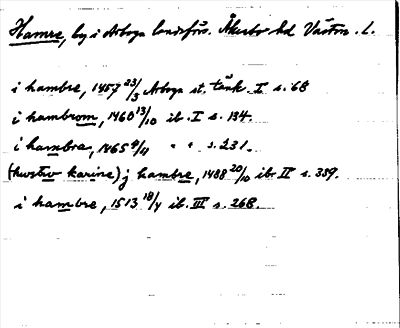 Hamre, by i Arboga landsförs. Åkerbo hd Västm. l.
i hambre, 1457 23/3 Arboga st. tänk. I s. 68
i hambrom, 1460 13/10 ib. I s. 134.
i hambra, 1465 4/11 " " s. 231.
(hustru karine) j hambre, 1488 20/10 ib. II s. 339.
i hambre, 1513 18/4 ib. III s. 268.